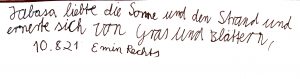 Jabasa liebte die Sonne und den Strand und
ernerte sich von Gras und Blättern,
10.8.21 Emin Rechts